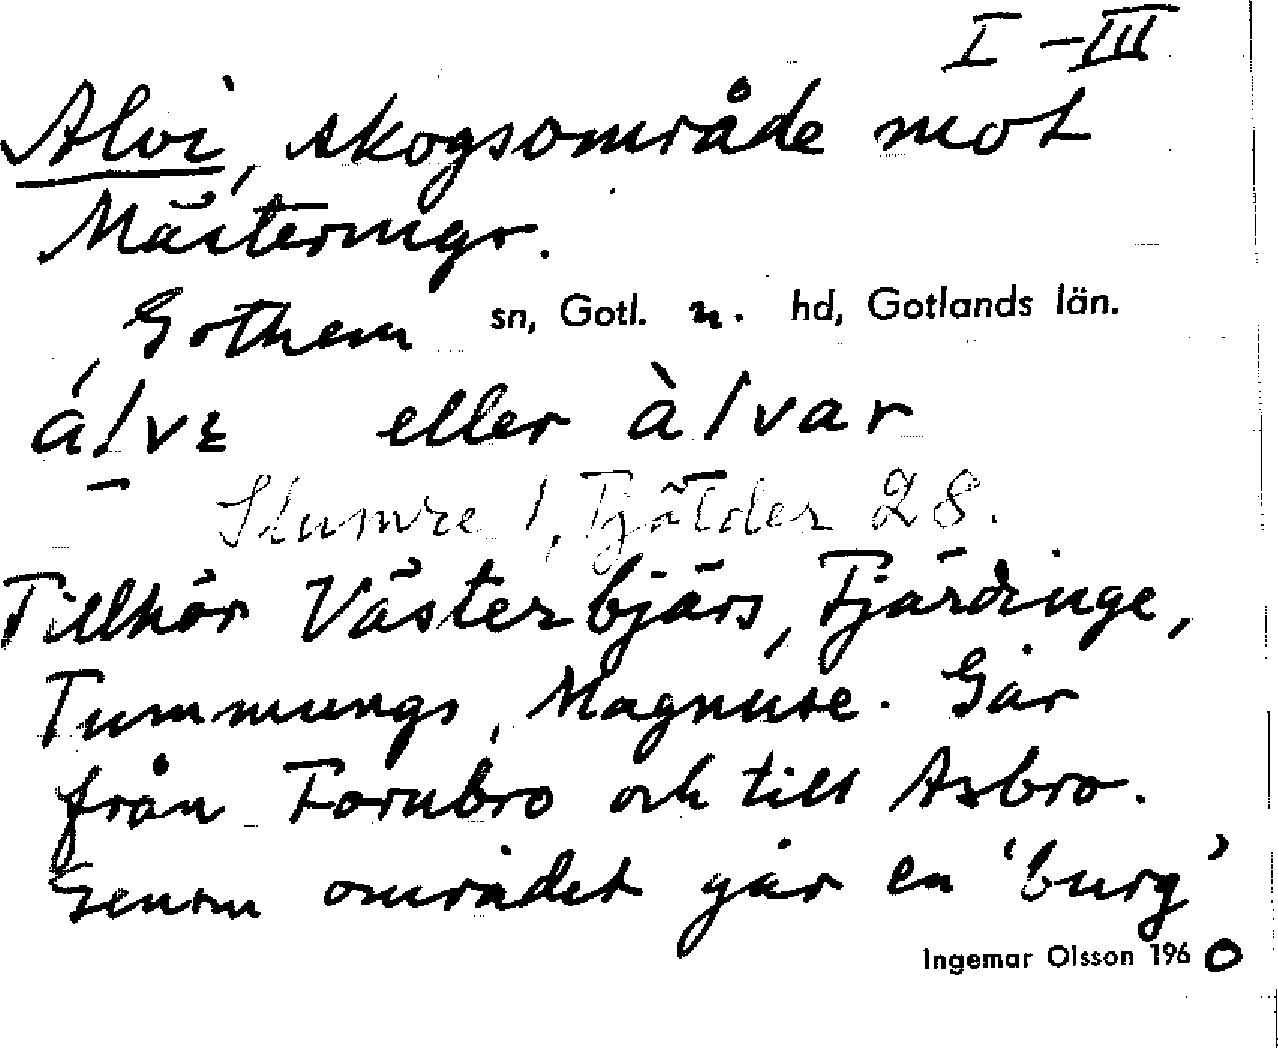 I-III
Alvi, skogsområde mot
Mästerings.
Gothem sn, Gotl. n. hd, Gotlands län.
álvɛ eller àlvar
Slumre 1, Tjälder 28.
Tillhör Västerbjärs, Fjärdinge,
Tummungs, Magnuse. Går
från Fornbro och till Asbro.
Genom området går en 'burg'
Ingemar Olsson 1960